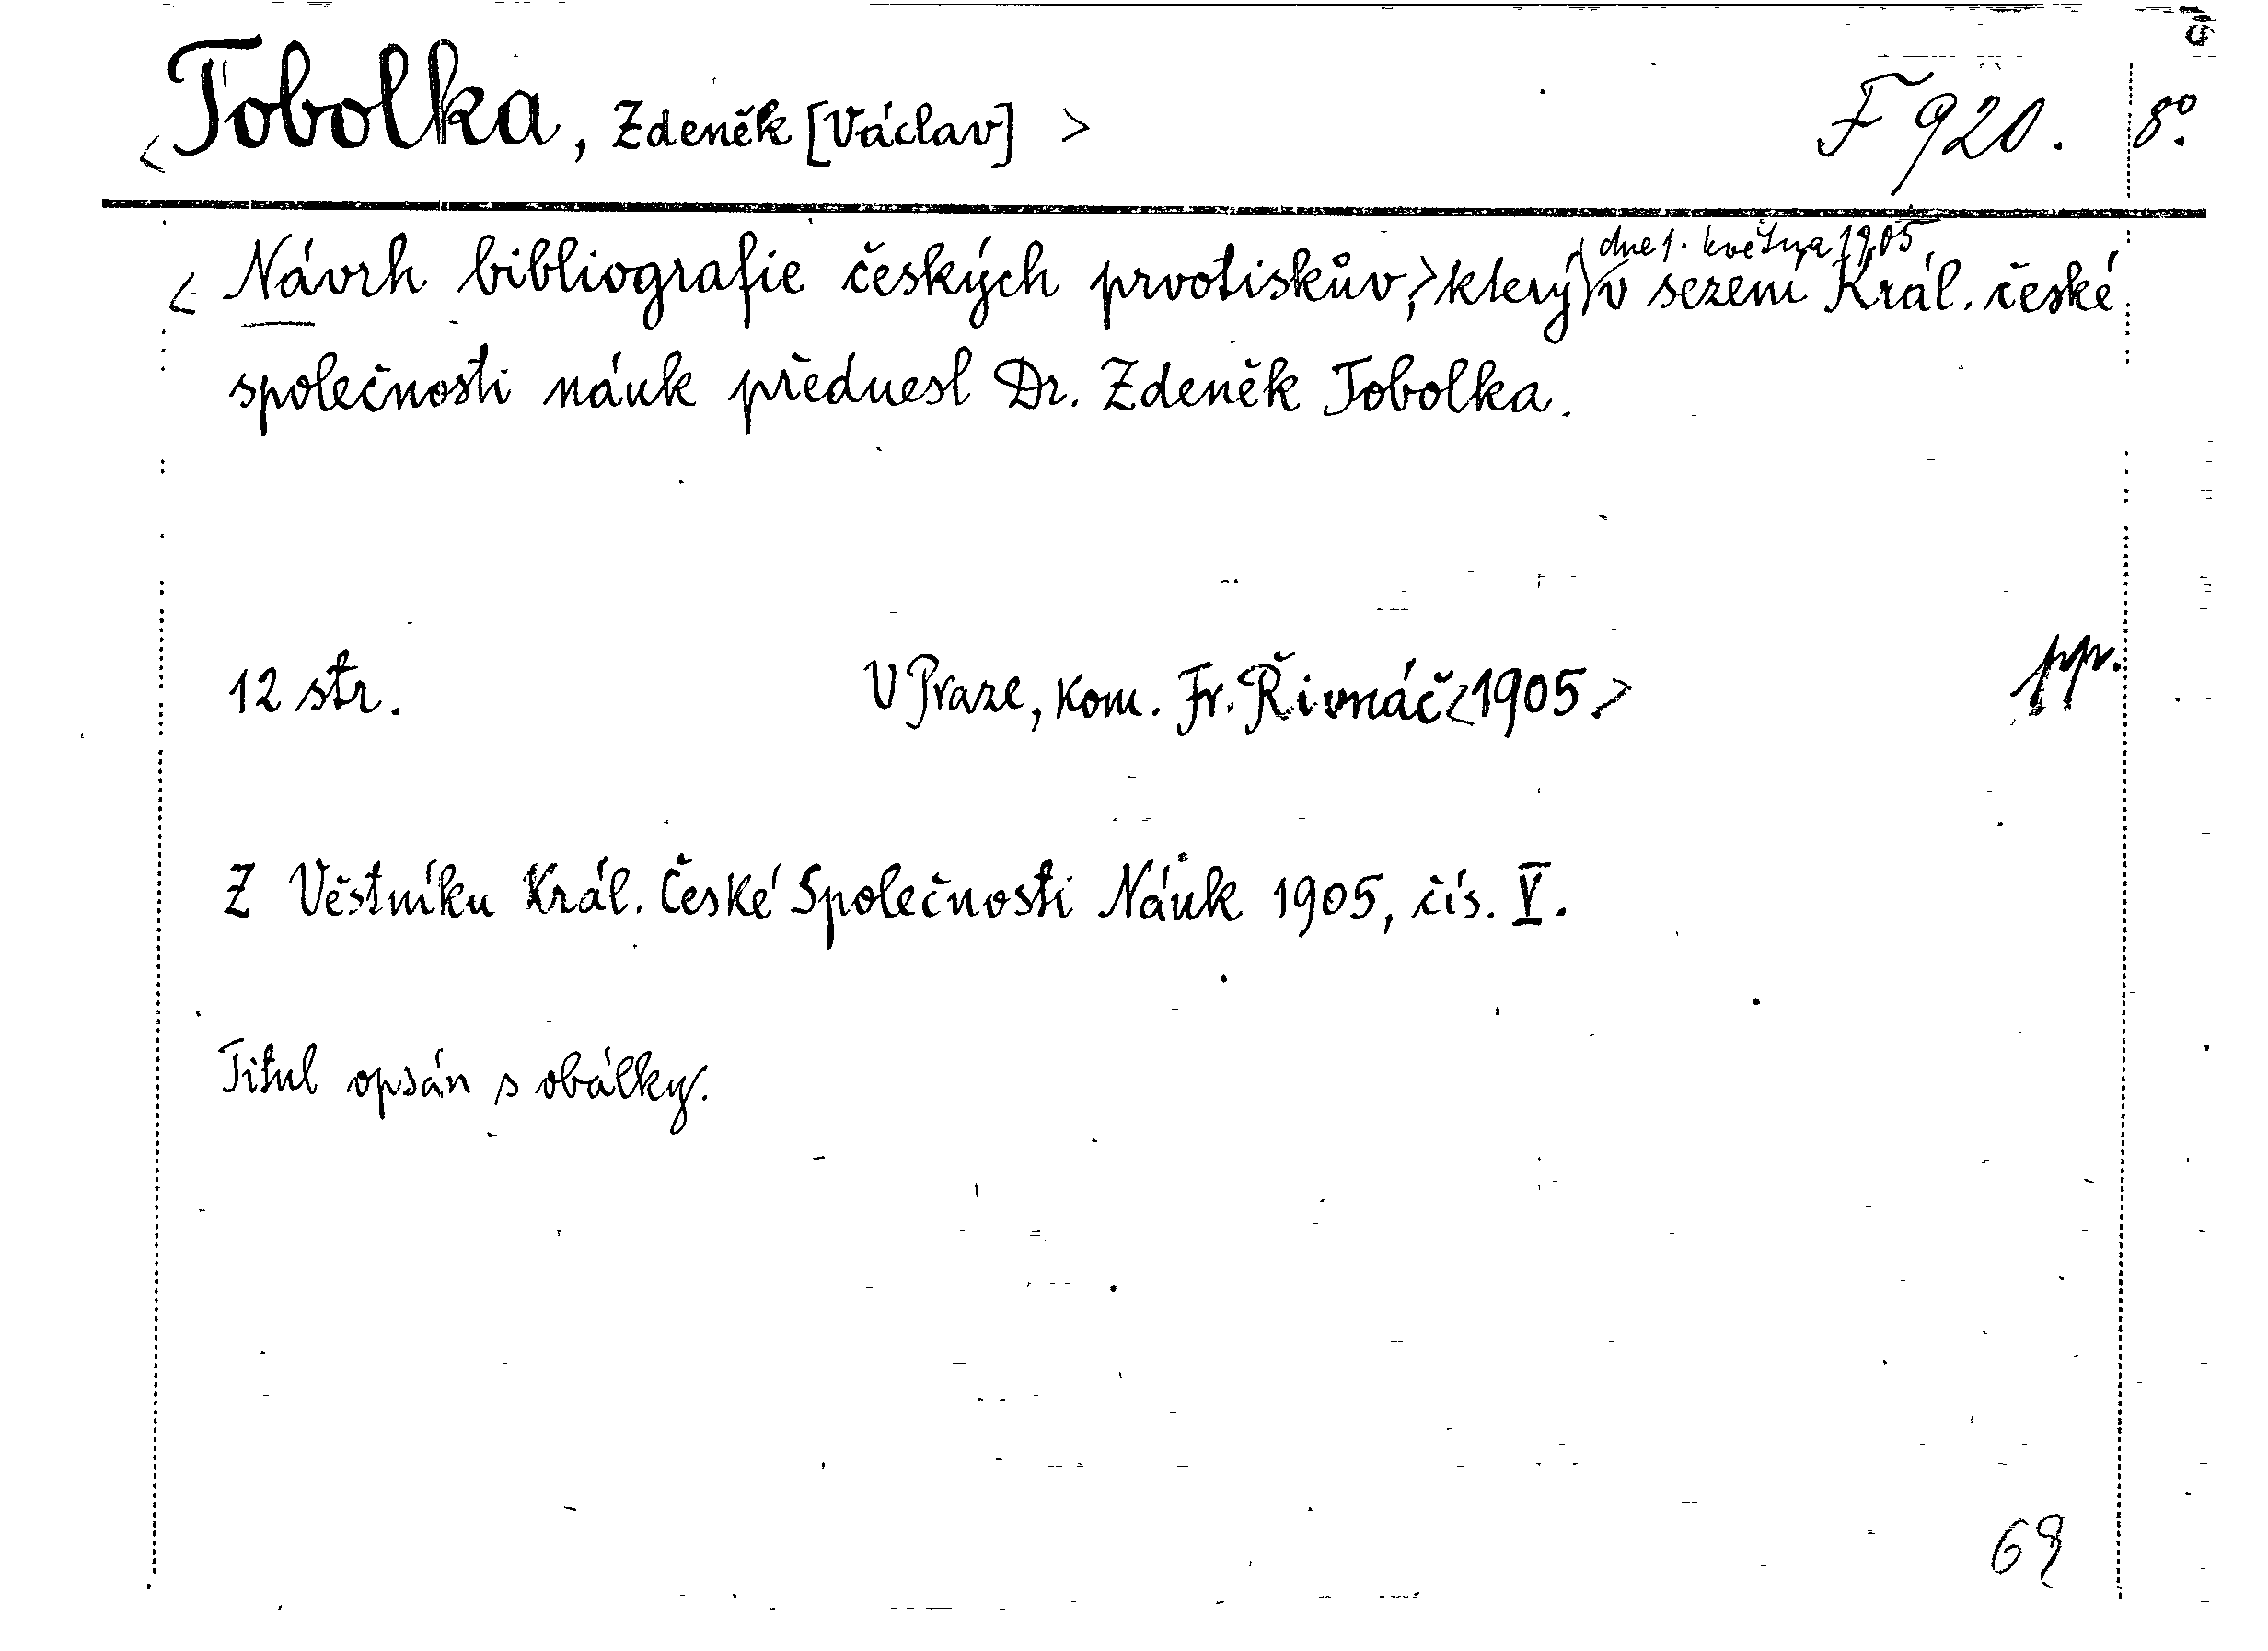 <Tobolka, Zdeněk [Václav] > F 920. 8°.
<Návrh bibliografie českých prvotiskův,> který dne 1. května 1905 v sezení Král. české
společnosti náuk přednesl Dr. Zdeněk Tobolka.
12 str. V Praze, kom. Fr. Řivnáč <1905.> pp.
Z Věstníku Král. České Společnosti Náuk 1905, čís. V.
Titul opsán s obálky.
69